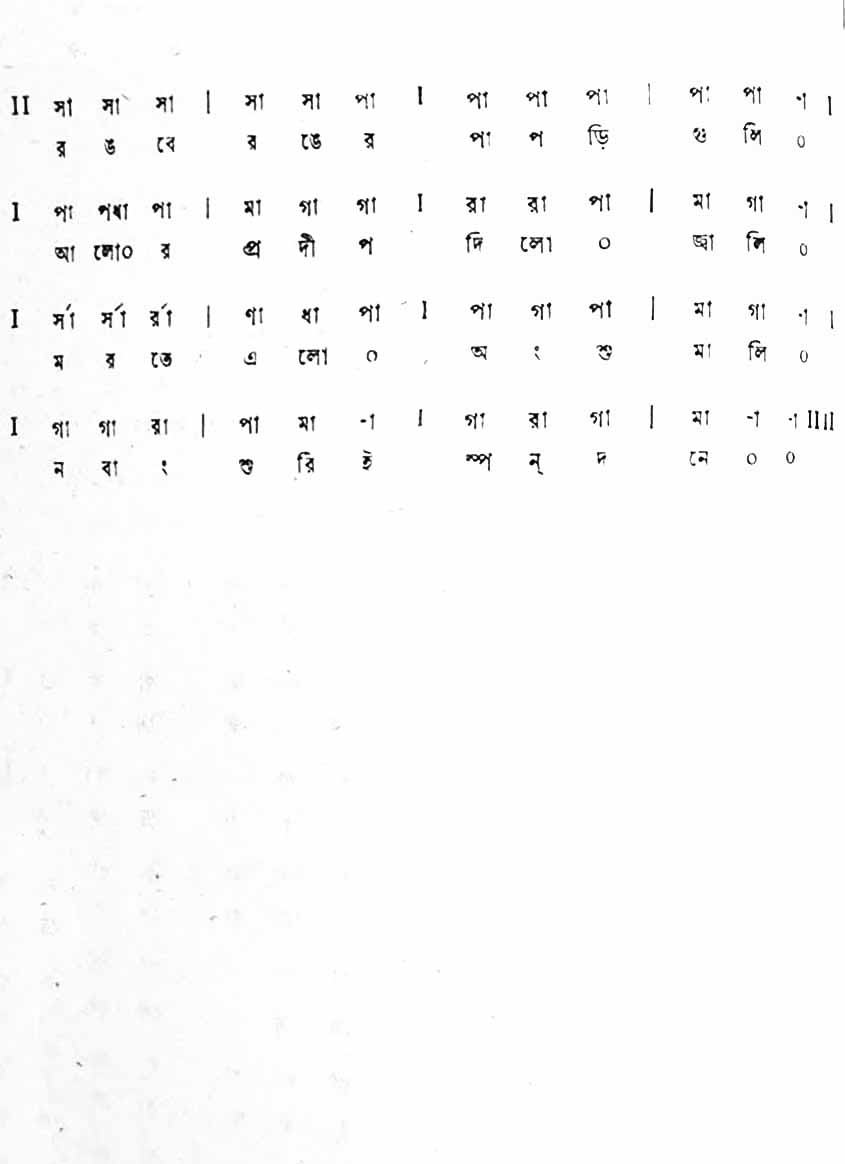 II সা সা সা | সা সা পা I পা পা পা | পা পা -া |
র ঙ বে র ঙে র পা প ড়ি গু লি ০
I পা পধা পা | মা গা গা I রা রা পা | মা গা -া |
আ লো০ র প্র দী প দি লো ০ জ্বা লি ০
I র্সা র্সা র্রা | ণা ধা পা I পা গা পা | মা গা -া |
ম র তে এ লো ০ অ ং শু মা লি ০
I গা গা রা | পা মা -া I গা রা গা | মা -া -া II II
ন বা ং শু রি ই স্প ন্ দ নে ০ ০